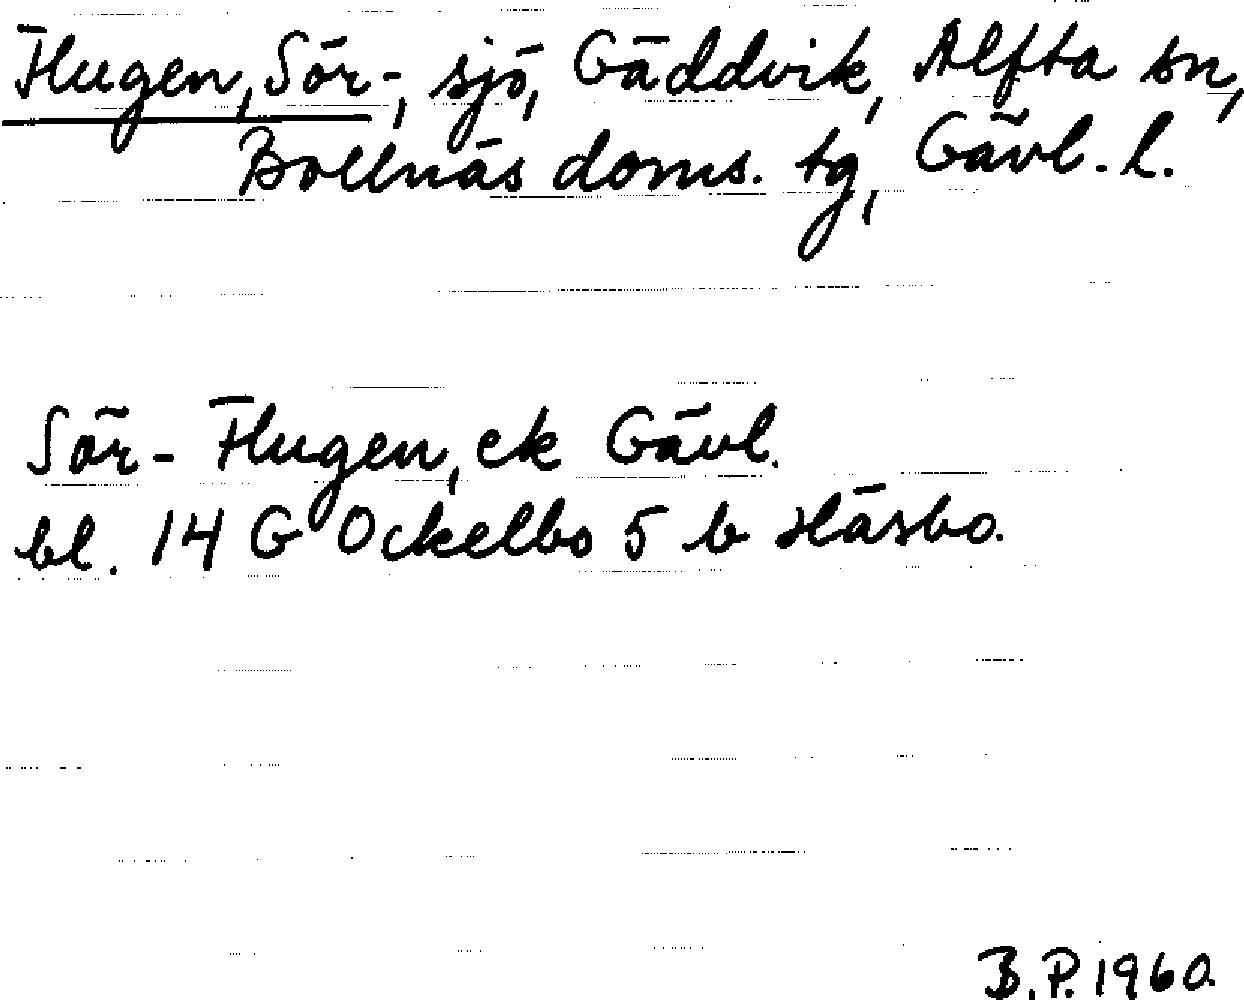 Flugen, Sör-, sjö, Gäddvik, Alfta sn,
Bollnäs doms. tg, Gävl. l.
Sör-Flugen, ek Gävl.
bl. 14 G Ockelbo 5 b Häsbo.
B.P. 1960.